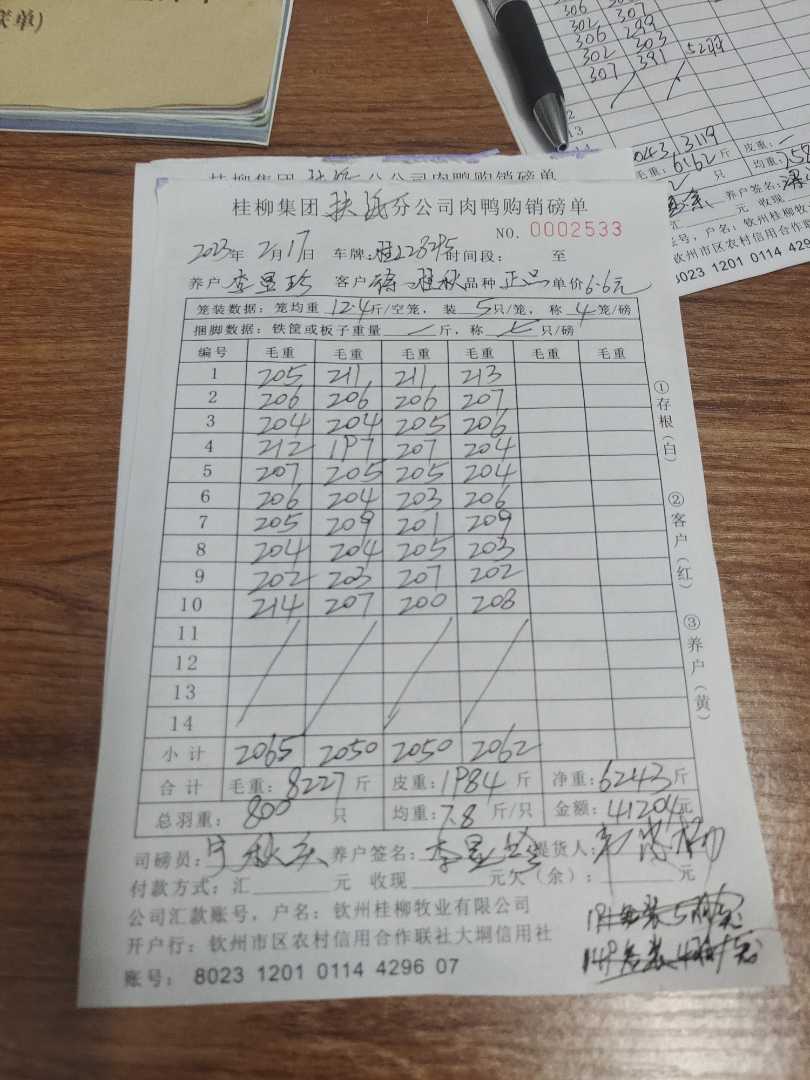 联单)
306 302
302 307
306 299
302 303
307 391 5299
12
13
043.3119
毛重:6162斤 皮重:
只 均重:7.58
养户签名:
汇 元 收现
账号,户名:钦州桂柳牧
钦州市区农村信用合作联
8023 1201 0114 4
桂柳集团 分公司肉鸭购销磅单
桂柳集团扶绥分公司肉鸭购销磅单
NO. 0002533
2023年2月17日 车牌:桂L28295 时间段: 至
养户 李显珍 客户 桂秋 品种 正品 单价 6.6元
笼装数据:笼均重 12.4斤/空笼,装 5只/笼,称 4笼/磅
捆脚数据:铁筐或板子重量 — 斤,称 只/磅
编号 毛重 毛重 毛重 毛重 毛重 毛重
1 205 211 211 213
2 206 206 206 207
3 204 204 205 206
4 212 197 207 204
5 207 205 205 204
6 206 204 203 206
7 205 209 201 209
8 204 204 205 203
9 202 203 207 202
10 214 207 200 208
11
12
13
14
小计 2065 2050 2050 2062
合计 毛重:8227斤 皮重:1984斤 净重:6243斤
总羽重: 800 只 均重:7.8斤/只 金额:41204元
司磅员: 养户签名:李显珍 提货人:
付款方式:汇 元 收现 元欠(余): 元
公司汇款账号,户名:钦州桂柳牧业有限公司
开户行:钦州市区农村信用合作联社大垌信用社
账号: 8023 1201 0114 4296 07
①存根(白)
②客户(红)
③养户(黄)